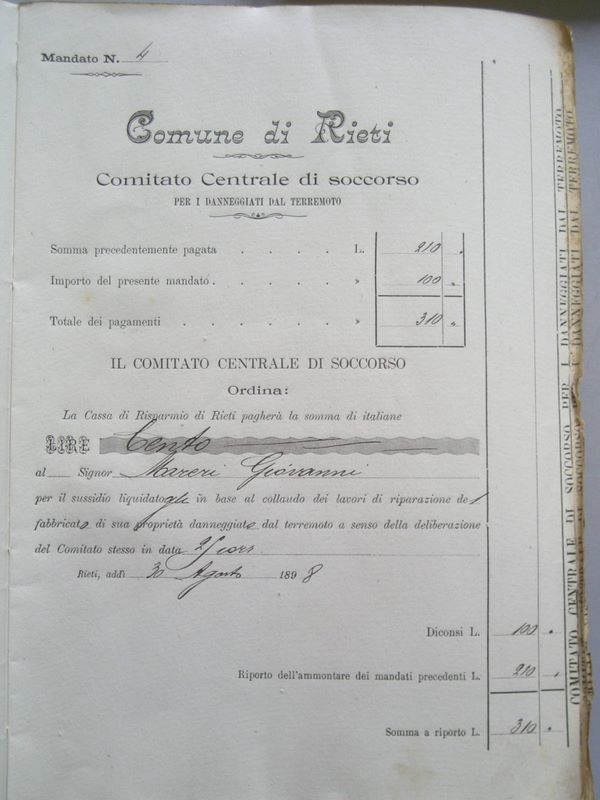 Mandato N. 4
Comune di Rieti
Comitato Centrale di soccorso
PER I DANNEGGIATI DAL TERREMOTO
Somma precedentemente pagata . . . . L. 210 "
Importo del presente mandato . . . . » 100 "
Totale dei pagamenti . . . . . . » 310 "
IL COMITATO CENTRALE DI SOCCORSO
Ordina:
La Cassa di Risparmio di Rieti pagherà la somma di italiane
LIRE Cento
al Signor Mareri Giovanni
per il sussidio liquidatogli in base al collaudo dei lavori di riparazione del
fabbricato di sua proprietà danneggiato dal terremoto a senso della deliberazione
del Comitato stesso in data 2/
Rieti, addì 30 Agosto 1898
Diconsi L. 100 "
Riporto dell'ammontare dei mandati precedenti L. 210 "
Somma a riporto L. 310 "
COMITATO CENTRALE DI SOCCORSO PER I DANNEGGIATI DAL TERREMOTO